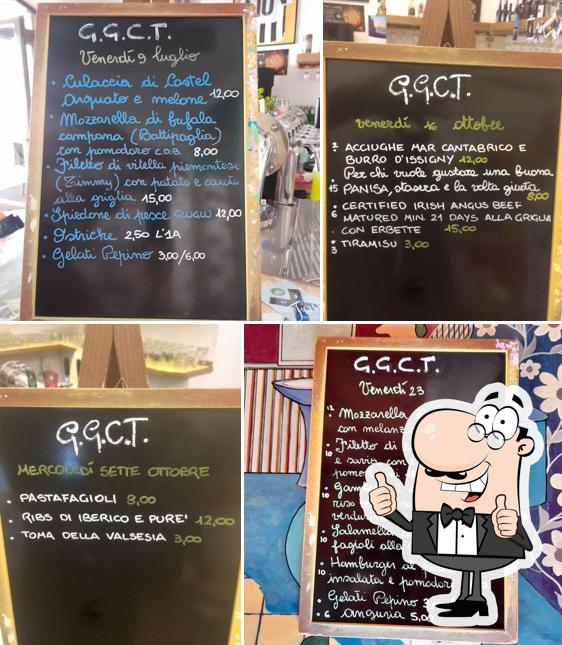 G.G.C.T.
Venerdì 9 luglio
• Culaccia di Castel
Arquato e melone 12,00
• Mozzarella di bufala
campana (Battipaglia)
con pomodoro C.D.B. 8,00
• Filetto di vitella piemontese
(Zimmy) con patate e carote
alla griglia 15,00
• Spiedone di pesce GWGW 12,00
• Ostriche 2,50 L'1A
• Gelati Pepino 3,00/6,00
G.G.C.T.
venerdì 16 ottobre
ACCIUGHE MAR CANTABRICO E
BURRO D'ISSIGNY 12,00
Per chi vuole gustare una buona
15 PANISA, stasera è la volta giusta 8,00
CERTIFIED IRISH ANGUS BEEF
6 MATURED MIN. 21 DAYS ALLA GRIGLIA
CON ERBETTE 15,00
• TIRAMISU 3,00
3
G.G.C.T.
MERCOLEDÌ SETTE OTTOBRE
• PASTAFAGIOLI 8,00
• RIBS DI IBERICO E PURE' 12,00
• TOMA DELLA VALSESIA 3,00
G.G.C.T.
Venerdì 23
12 Mozzarella
con melanz
• Filetto di
10 e
10
riso
verdu
fagioli alla
• Hamburger
10 insalata e pomodoro
Gelati Pepino 3
• 6 anguria 5,00